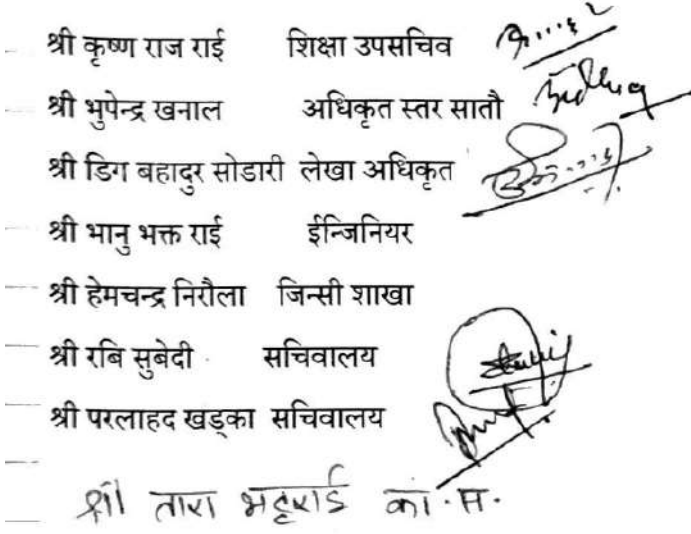 श्री कृष्ण राज राई शिक्षा उपसचिव
श्री भुपेन्द्र खनाल अधिकृत स्तर सातौ
श्री डिग बहादुर सोडारी लेखा अधिकृत
श्री भानु भक्त राई ईन्जिनियर
श्री हेमचन्द्र निरौला जिन्सी शाखा
श्री रबि सुबेदी सचिवालय
श्री परलाहद खड्का सचिवालय
श्री तारा भट्टराई का.स.